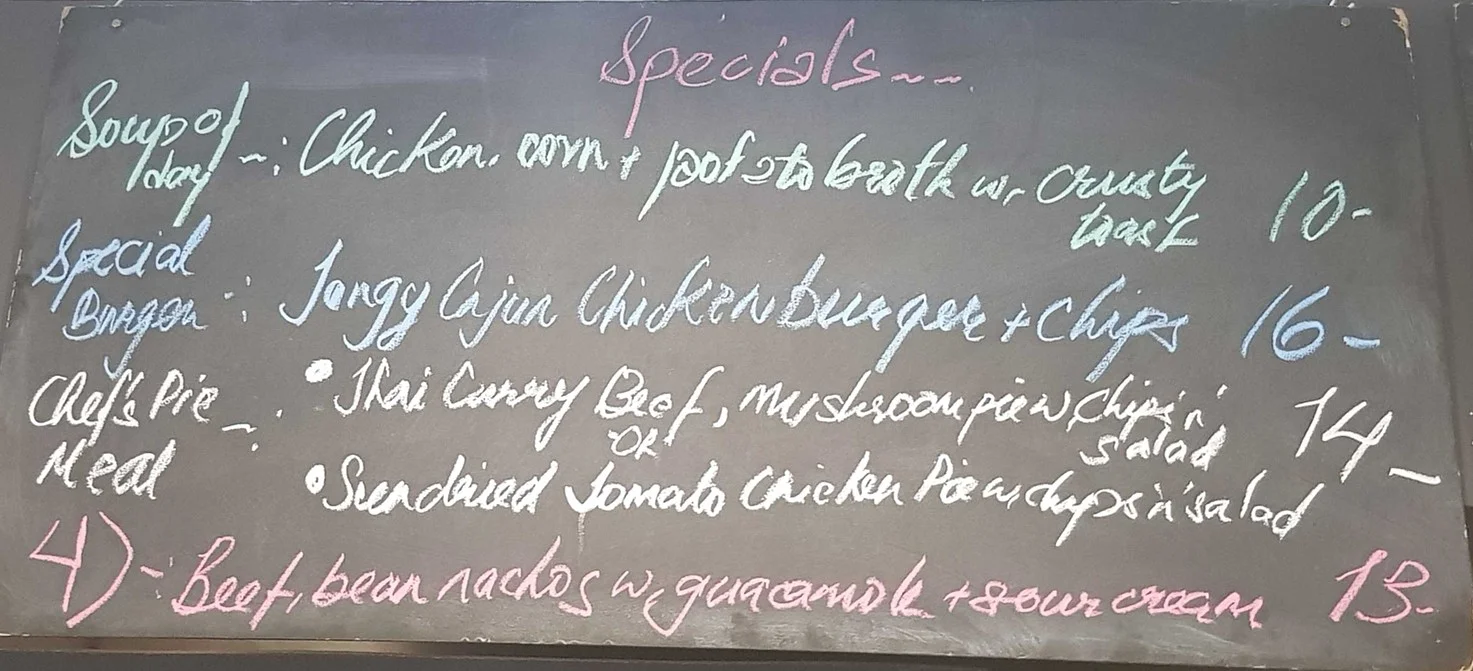 Specials~~.
Soup of day ~: Chicken, corn + potato broth w, crusty toast 10-
Special Burger : Tangy Cajun Chicken burger + Chips 16-
Chef's Pie Meal -: • Thai Curry Beef, mushroom pie w chips 'n' salad 14-
OR
• Sundried Tomato Chicken Pie w, chips 'n' salad
4) -: Beef, bean nachos w, guacamole + sour cream 13-